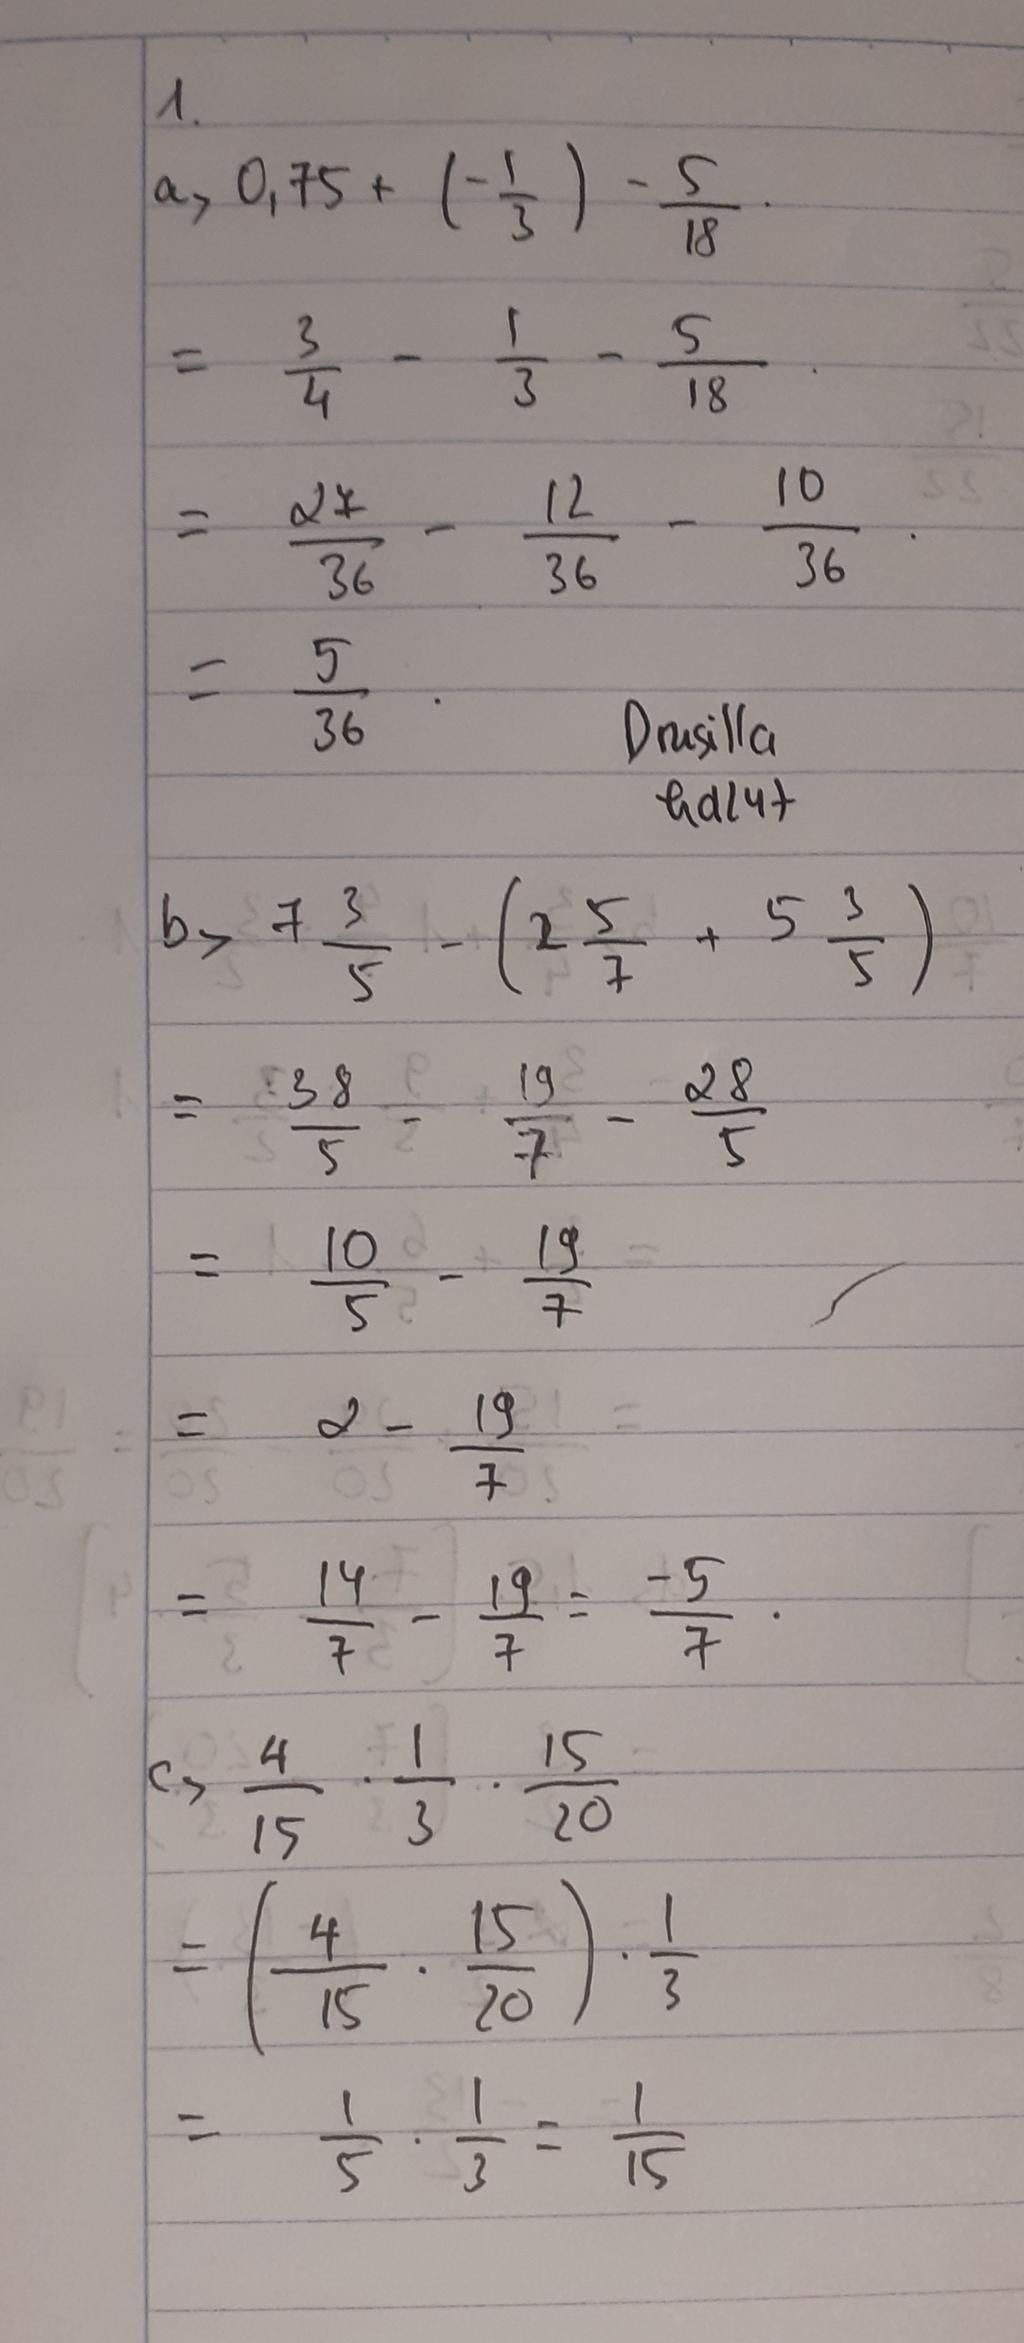 1.
a, 0,75 + (-1/3) - 5/18.
= 3/4 - 1/3 - 5/18.
= 27/36 - 12/36 - 10/36.
= 5/36.
Drusilla
b, 7 3/5 - (2 5/7 + 5 3/5)
= 38/5 - 19/7 - 28/5
= 10/5 - 19/7
= 2 - 19/7
= 14/7 - 19/7 = -5/7.
c, 4/15 . 1/3 . 15/20
= (4/15 . 15/20) . 1/3
= 1/5 . 1/3 = 1/15